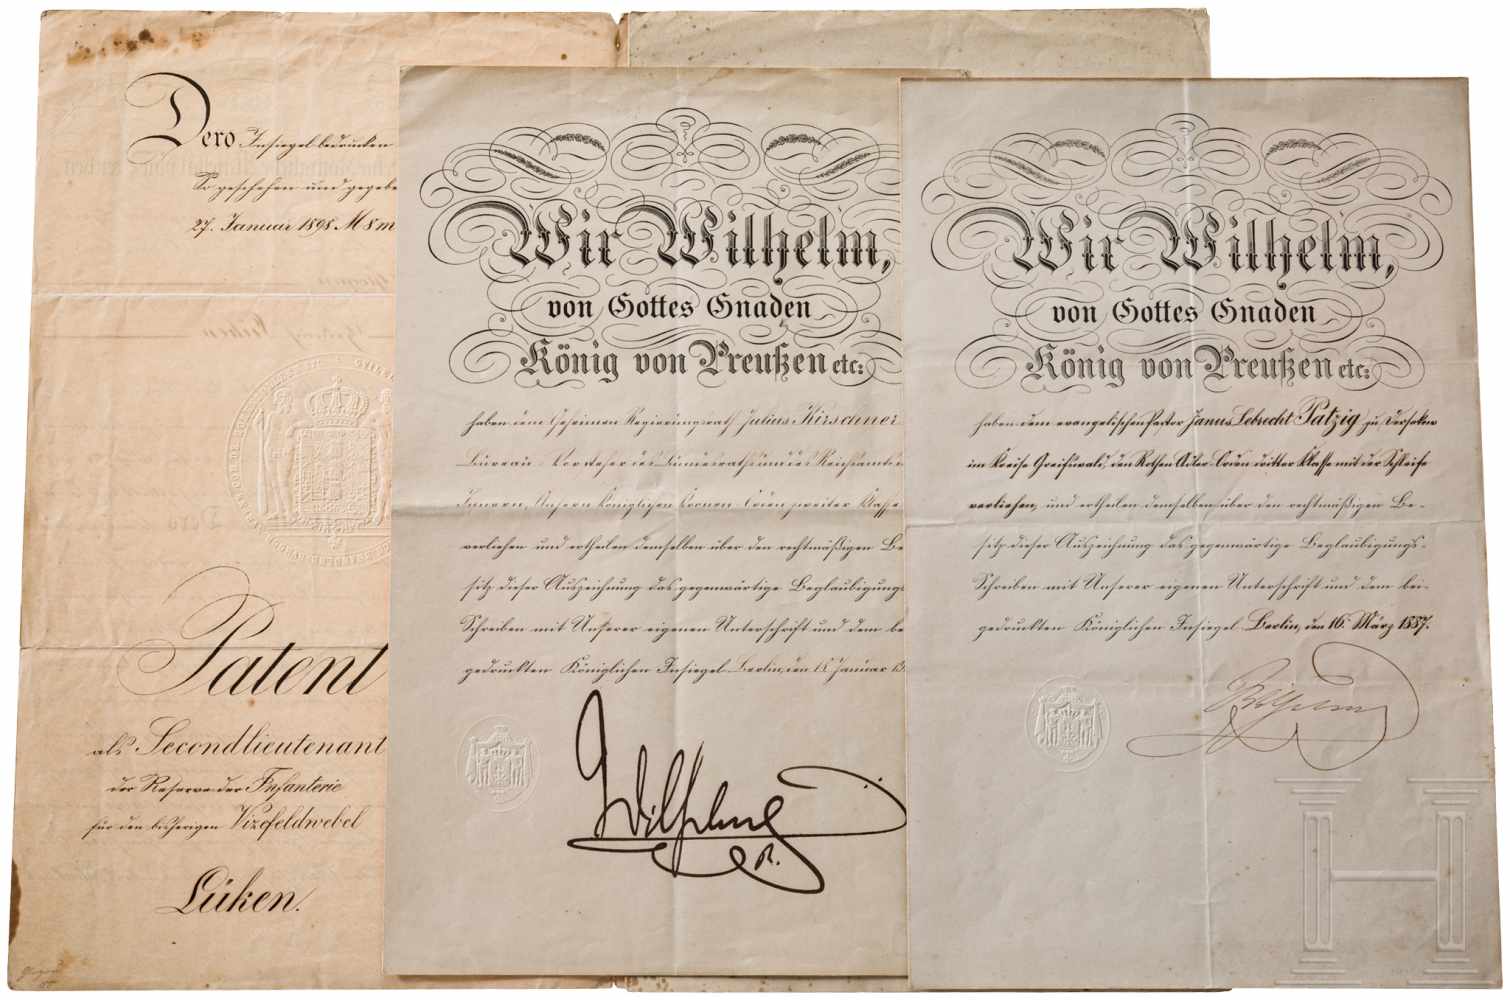 Dero Insiegel bedrucken
So geschehen und gegebe
27. Januar 1898.
Patent
als Secondlieutenant
der Reserve der Infanterie
für den bisherigen Vizefeldwebel
Lüken.
Wir Wilhelm,
von Gottes Gnaden
König von Preußen etc:
haben dem Geheimen Regierungsrath Julius Kirschner
Büreau-Vorsteher des Bundesraths und des Reichsamts
Innern, Unsern Königlichen Kronen-Orden zweiter Klasse
verliehen und ertheilen demselben über den rechtmäßigen Be
sitz dieser Auszeichnung das gegenwärtige Beglaubigungs
Schreiben mit Unserer eigenen Unterschrift und dem be
gedruckten Königlichen Insiegel. Berlin, den 18. Januar
Wilhelm
R.
Wir Wilhelm,
von Gottes Gnaden
König von Preußen etc:
haben dem evangelischen Pastor Lebrecht Patzig zu
im Kreise Greifswald, den Rothen Adler-Orden dritter Klasse mit der Schleife
verliehen, und ertheilen demselben über den rechtmäßigen Be-
sitz dieser Auszeichnung das gegenwärtige Beglaubigungs-
Schreiben mit Unserer eigenen Unterschrift und dem bei-
gedruckten Königlichen Insiegel. Berlin, den 16. März 1887.
Wilhelm